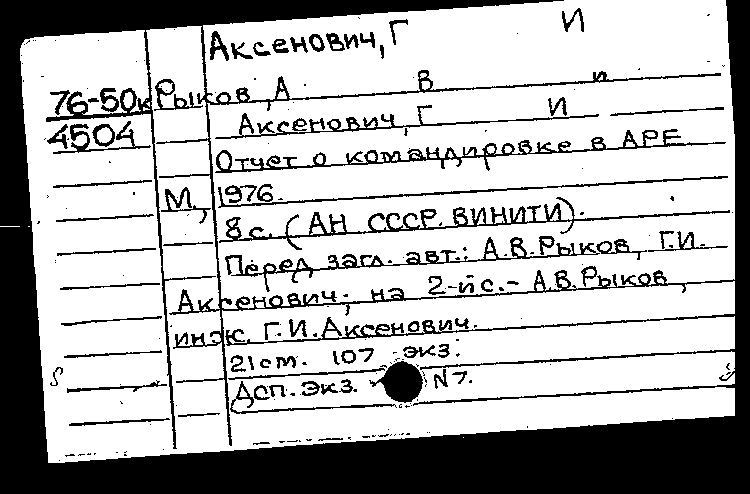 Аксенович, Г И
76-50к Рыков, А В и
4504 Аксенович, Г И
Отчет о командировке в АРЕ
М., 1976.
8с. (АН СССР. ВИНИТИ).
Перед загл. авт.: А.В.Рыков, Г.И.
Аксенович; на 2-й с.- А.В.Рыков,
инж. Г.И.Аксенович.
21см. 107 экз.
Дсп. Экз. N7.